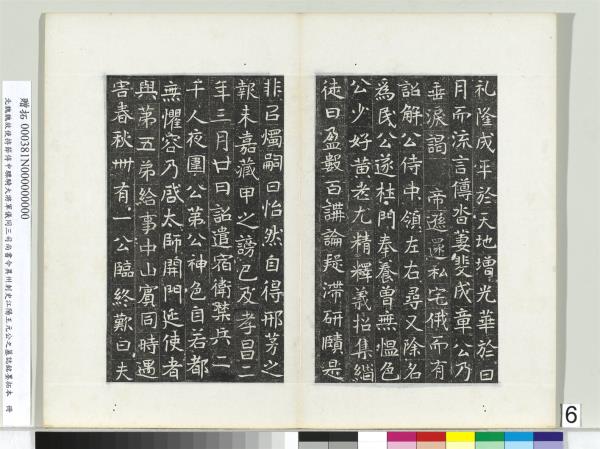 礼隆成平於天地增光華於日
月而流言傅沓萋斐成章公乃
垂淚謁 帝遜還私宅俄而有
詔解公侍中領左右尋又除名
為民公遂杜門奉養曾無慍色
公少好黄老尤精釋義招集緇
徒日盈數百講論疑滯研賾是
非以燭嗣日怡然自得邢芳之
報未嘉藏甲之謗已及孝昌二
年三月廿日詔遣宿衛禁兵二
千人夜圍公第公神色自若都
無懼容乃啟太師開門延使者
與第五弟給事中山賓同時遇
害春秋卌有一公臨終歎曰夫
贈拓 000381N000000000
北魏魏故使持節侍中驃騎大將軍儀同三司尚書令冀州刺史江陽王元公之墓誌銘墨拓本 冊
6